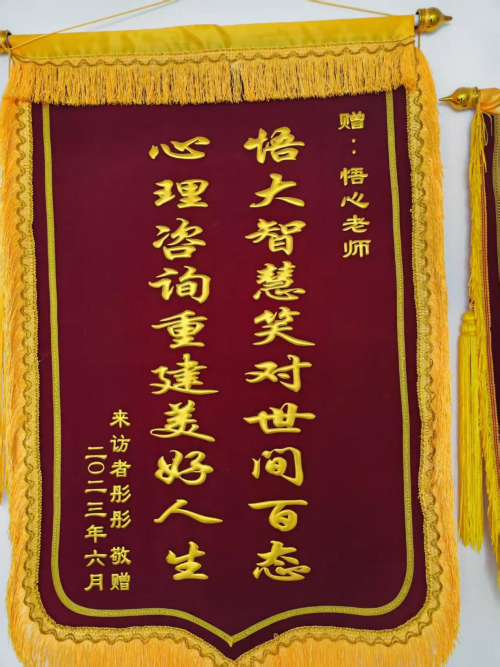 赠：悟心老师
悟大智慧笑对世间百态
心理咨询重建美好人生
来访者彤彤 敬赠
二〇二三年六月